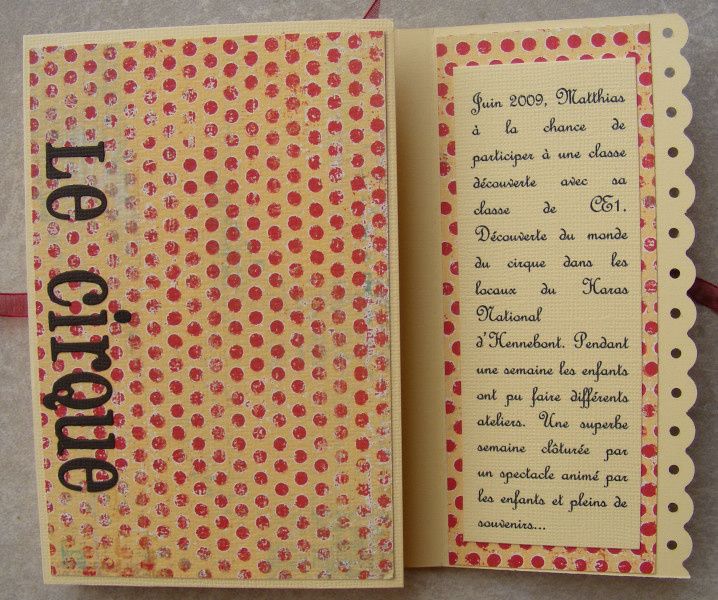 Le cirque
Juin 2009, Matthias
à la chance de
participer à une classe
découverte avec sa
classe de CE1.
Découverte du monde
du cirque dans les
locaux du Haras
National
d'Hennebont. Pendant
une semaine les enfants
ont pu faire différents
ateliers. Une superbe
semaine clôturée par
un spectacle animé par
les enfants et pleins de
souvenirs...